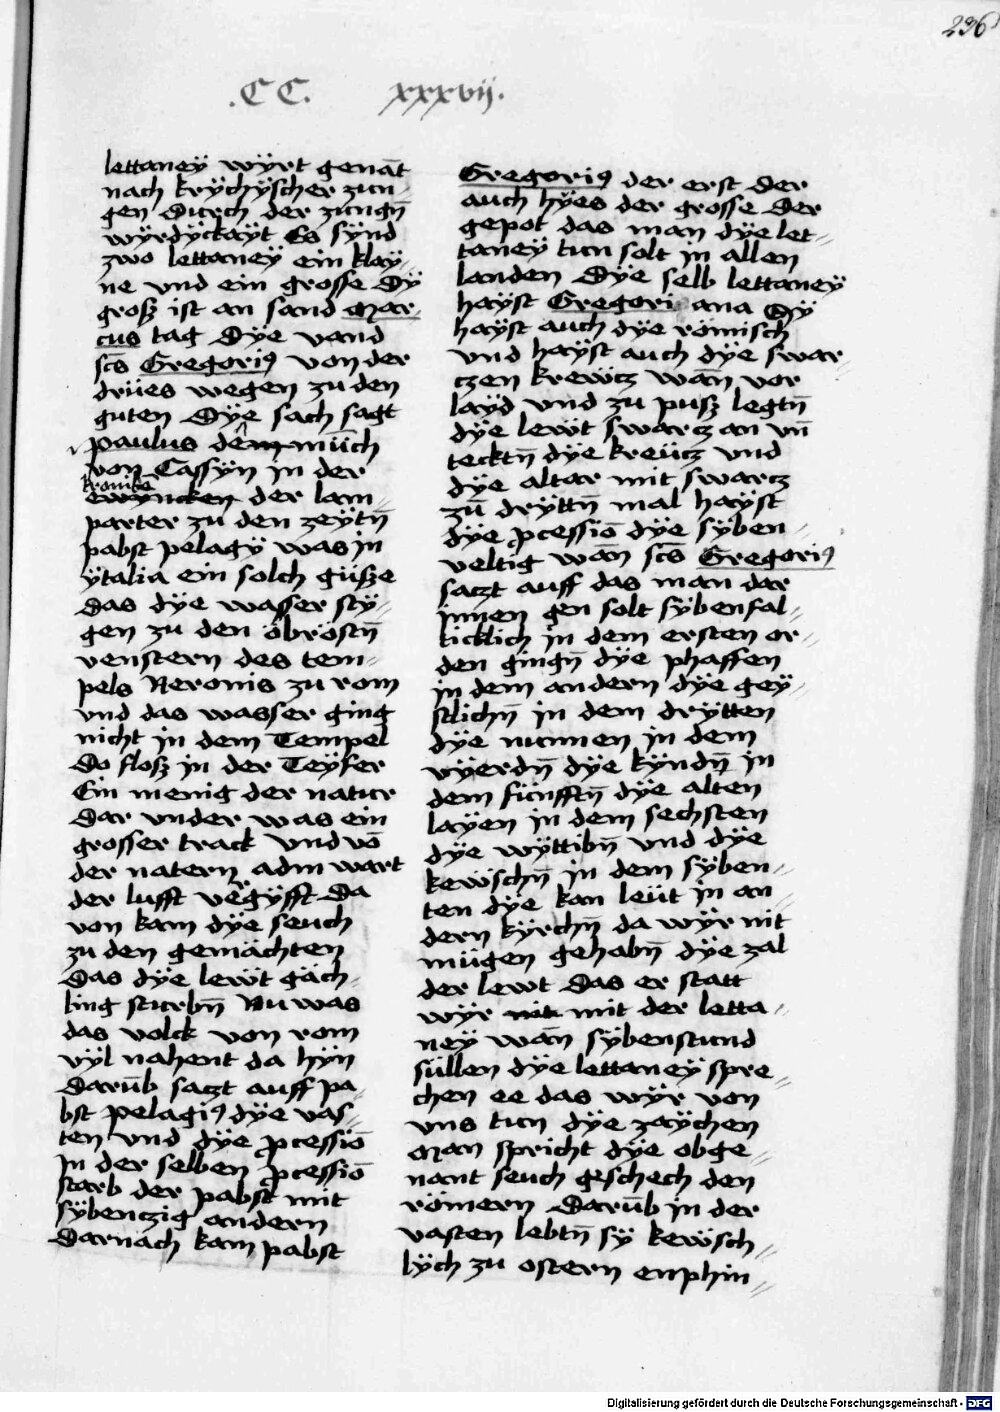 236
.CC. xxxvij.
lettaneÿ wÿrt genāt
nach krÿchÿscher zun-
gen Durch der zungn̄
wÿrdÿckaÿt Es sÿnd
zwo lettaneÿ ein klaÿ-
ne vnd ein grosse Dÿ
groß ist an sand Mar-
cus tag Dÿe vand
scs̄ Gregori9 von der
drües wegen zu den
guten Dÿe sach sagt
paulus dem müch
von Cassÿn in der
kronike
ewÿncken der lam-
parter zu den zeÿtn̄
pabst pelagÿ was in
ÿtalia ein solch güsze
das dÿe wasser stÿ-
gen zu den öbröstn̄
venstern des tem-
pels Neronis zu rom
vnd das wasser ging
nicht in dem Tempel
Do floß in der Teÿfer
Ein menig der natur
Dar vnder was ein
grosser track vnd vō
der natern adm wart
der lufft vergÿfft Da
von kam dÿe seuch
zu den gemächten
Das dÿe lewt gäch-
ling sturbn̄ Nu was
das volck von rom
vÿl nahent da hÿn
Darūb saczt auff pa-
bst pelagi9 dÿe vas-
ten vnd dÿe ꝓcessiō
In der selben ꝓcessiō
starb der pabst mit
sÿbenczig andern
Darnach kam pabst
Gregori9 der erst der
auch hÿes der grosse Der
gepot das man dÿe let-
taneÿ tun solt in allen
landen Dÿe selb lettaneÿ
haÿst Gregori ana Dÿ
haÿst auch dÿe römisch
vnd haÿst auch dÿe swar-
czen krewcz wān vor
laÿd vnd zu pusz legtn̄
dÿe lewt swarcz an vn̄
tecktn̄ dÿe kreücz vnd
dÿe altar mit swarcz
zū drÿttn̄ mal haÿst
dÿe ꝓcessiō dÿe sÿben-
veltig wān scs̄ Gregori9
saczt auff das man dar
Innen gen solt sÿbenfal-
ticklich in dem ersten or-
den gingn̄ dÿe phaffen
in dem andern dÿe geÿ-
stlichn̄ in dem drÿtten
dÿe nunnen in dem
vÿerdn̄ dÿe kÿndn̄ in
dem fünfftn̄ dÿe alten
laÿen in dem sechsten
dÿe wÿttibn̄ vnd dÿe
kewschn̄ in dem sÿben-
ten dÿe kan leüt in an-
dern kÿrchn̄ da wÿr nit
mügen gehabn̄ dÿe zal
der lewt Das er statt
wÿr nit mit der letta-
neÿ wān sÿbenstund
süllen dÿe lettaneÿ spre-
chen ee das wÿr von
vns tun dÿe zaÿchen
Man spricht dÿe obge-
nant seuch geschech den
römern Darūb in der
vasten lebtn̄ sÿ kewsch-
lÿch zu ostern enphin-
Digitalisierung gefördert durch die Deutsche Forschungsgemeinschaft - DFG